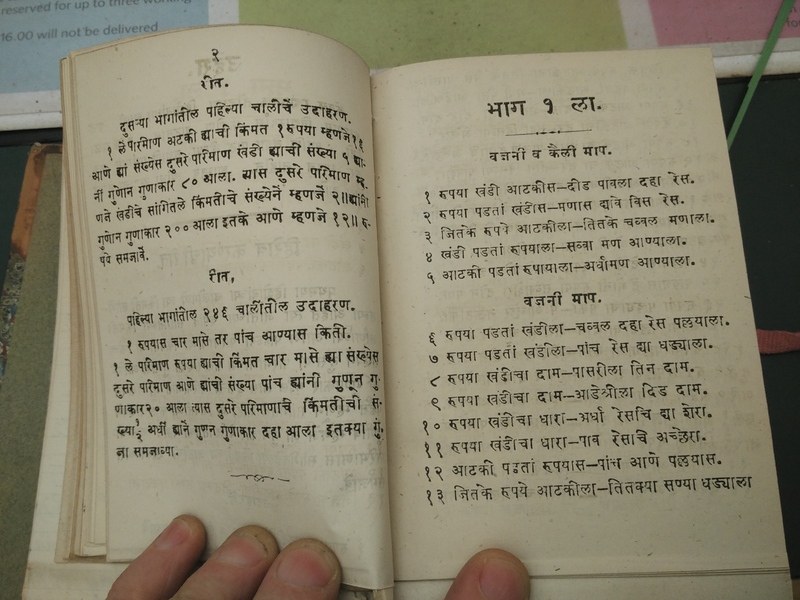 reserved for up to three working
16.00 will not be delivered
२
रीत.
दुसऱ्या भागांतील पहिल्या चालीचें उदाहरण.
१ लें परिमाण अटकी ह्याची किंमत १ रुपया म्हणजे १६
आणे ह्या संख्येस दुसरे परिमाण खंडी ह्याची संख्या ५ ह्या-
नीं गुणोन गुणाकार ८० आला. ह्यास दुसरे परिमाण म्ह-
णजे खंडीचे सांगितले किंमतीचे संख्येनें म्हणजें २॥ ह्यांनी
गुणोन गुणाकार २०० आला इतके आणे म्हणजे १२॥ रु-
पये समजावें.
रीत,
पहिल्या भागांतील २४६ चालींतील उदाहरण.
१ रुपयास चार मासे तर पांच आण्यास किती.
१ ले परिमाण रुपया ह्याची किंमत चार मासे ह्या संख्येस
दुसरे परिमाण आणे ह्याची संख्या पांच ह्यांनी गुणून गु-
णाकार २० आला त्यास दुसरे परिमाणाचे किंमतीची सं-
ख्या अर्धी ह्यानें गुणून गुणाकार दहा आला इतक्या गुं-
जा समजाव्या.
भाग १ ला.
वजनी व कैली माप.
१ रुपया खंडी आटकीस—दीड पावला दहा रेस.
२ रुपया पडतां खंडीस—मणास द्यावे विस रेस.
३ जितके रुपये आटकीला—तितके चव्वल मणाला.
४ खंडी पडतां रुपयाला—सव्वा मण आण्याला.
५ आटकी पडतां रुपायाला—अर्धामण आण्याला.
वजनी माप.
६ रुपया पडतां खंडीला—चव्वल दहा रेस पलयाला.
७ रुपया पडतां खंडीला—पांच रेस द्या धड्याला.
८ रुपया खंडीचा दाम—पासरीला तिन दाम.
९ रुपया खंडीचा दाम—आडेश्रीला दिड दाम.
१० रुपया खंडीचा धारा—अर्धा रेसचि द्या शेरा.
११ रुपया खंडीचा धारा—पाव रेसाचि अच्छेरा.
१२ आटकी पडतां रुपयास—पांच आणे पलयास.
१३ जितके रुपये आटकीला—तितक्या सण्या धड्याला